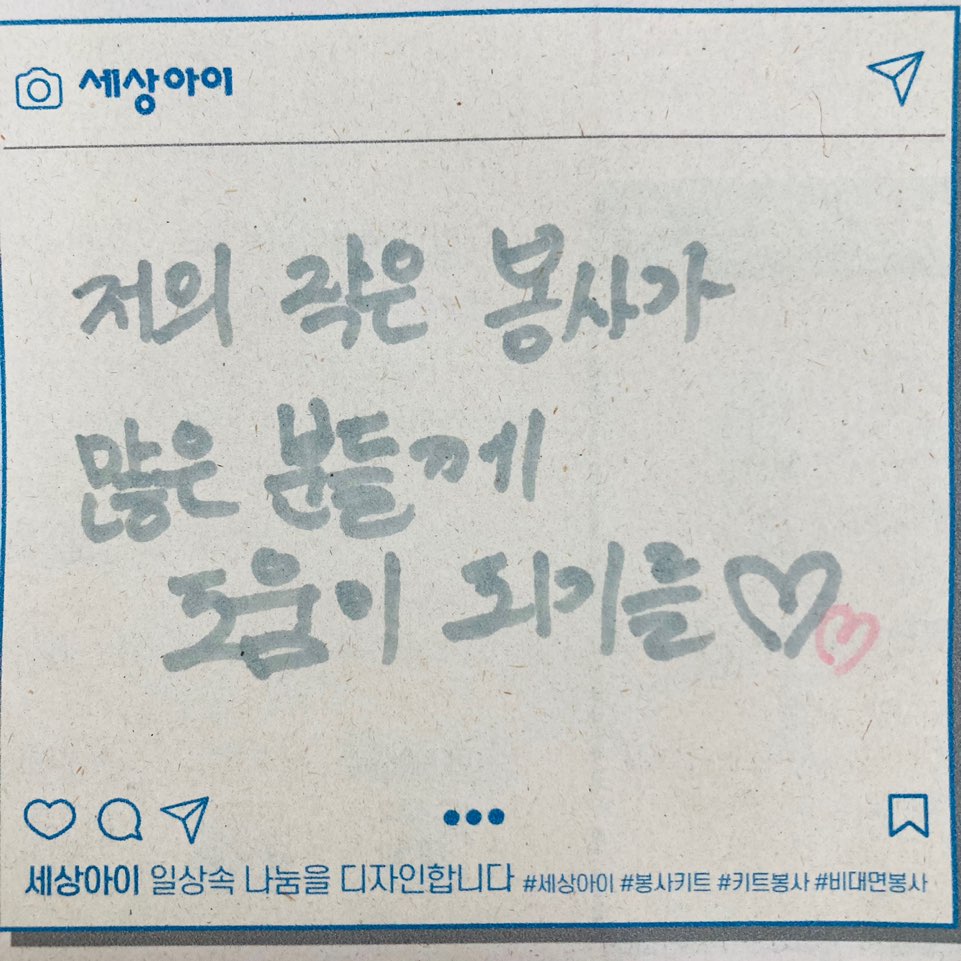 세상아이
저의 작은 봉사가
많은 분들께
도움이 되기를♡♡
세상아이 일상속 나눔을 디자인합니다 #세상아이 #봉사키트 #키트봉사 #비대면봉사